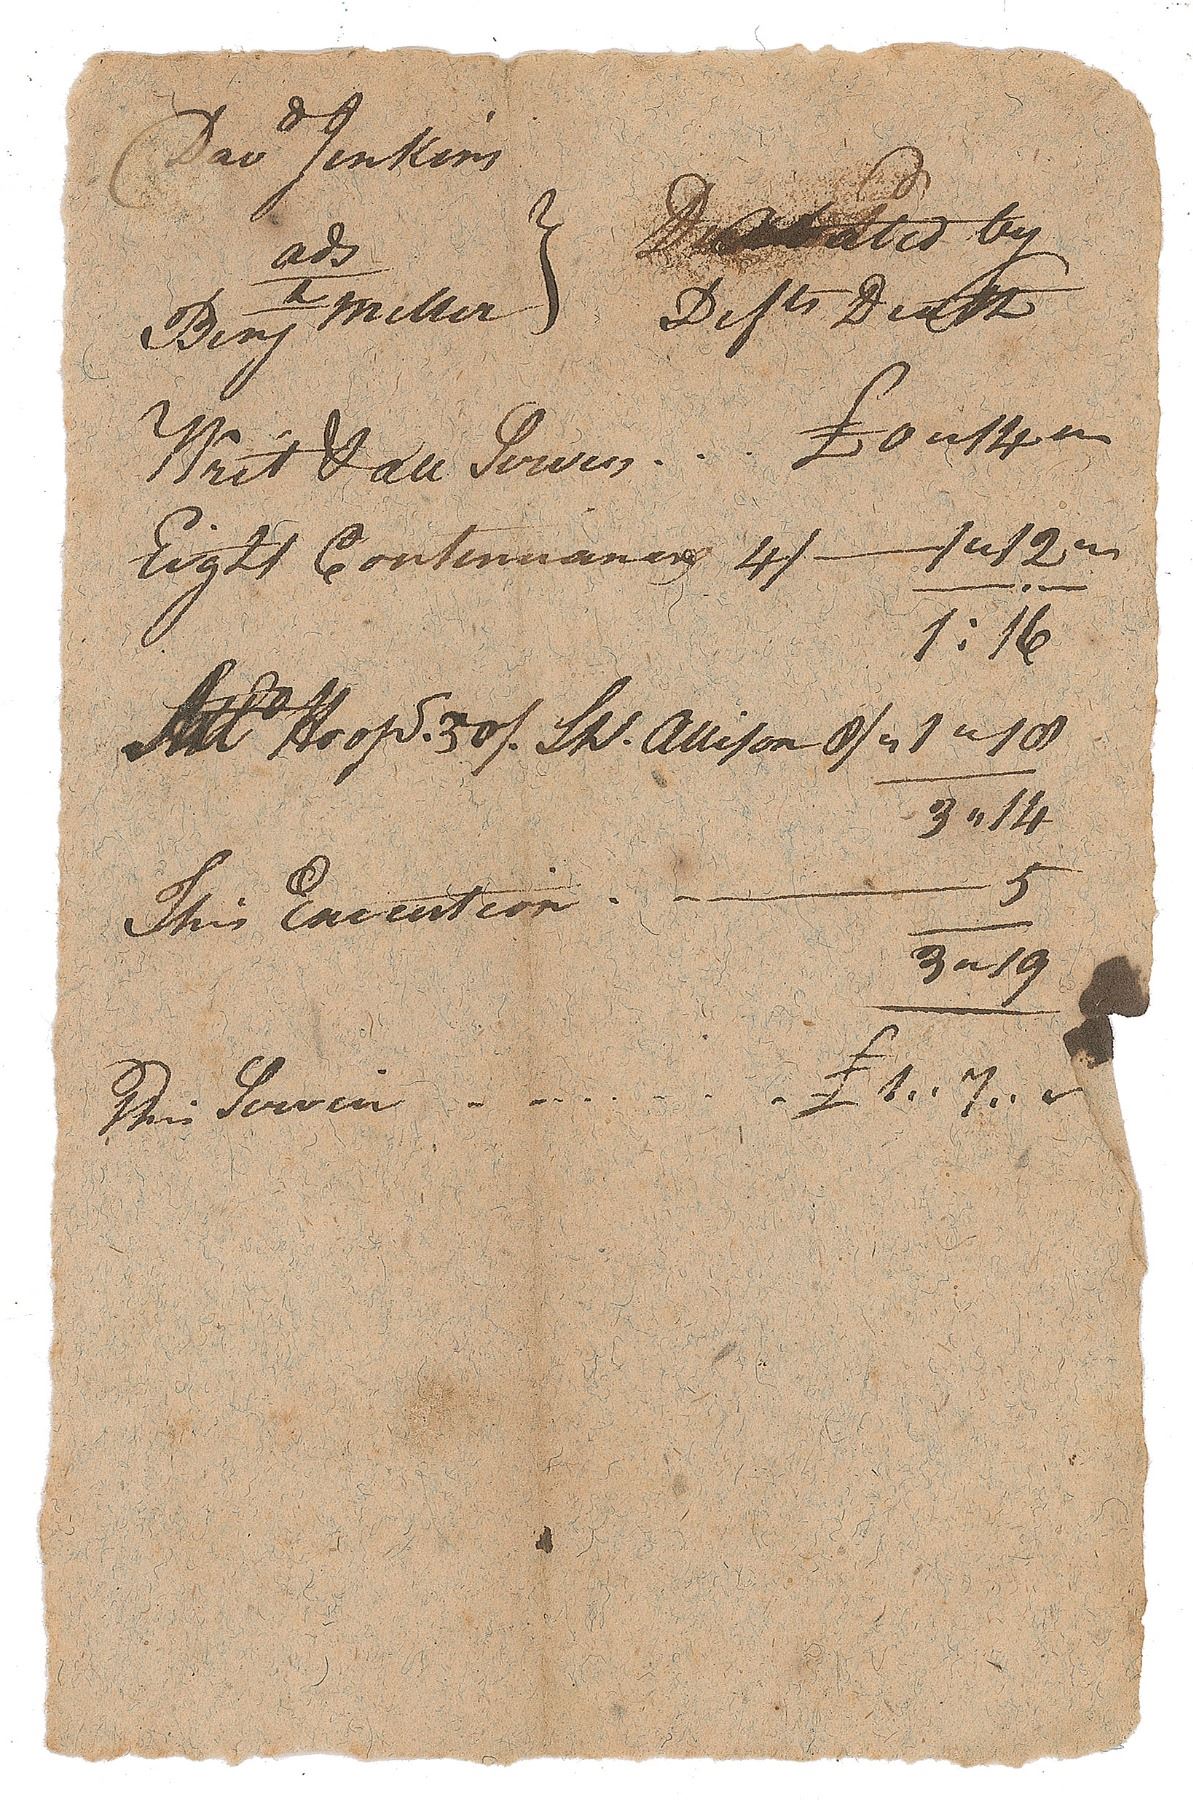 Dav.d Jenkins
ads
Benj.n Miller
by
Defts Death
Writ & all Servis . . . £ 0 " 14 "
Eight Continuances 4/ — 1 " 12 "
1 : 16
Hoopr. 30/. Sh. Allison 8/ " 1 " 18
3 " 14
This Execution . — 5
3 " 19
This Servis - - . . . . . - £ 1 .. 7 ..